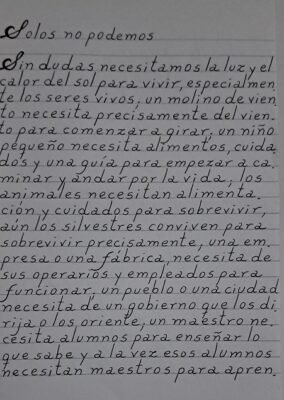 Solos no podemos
Sin dudas necesitamos la luz y el
calor del sol para vivir, especialmen
te los seres vivos; un molino de vien
to necesita precisamente del vien.
to para comenzar a girar; un niño
pequeño necesita alimentos, cuida
dos y una guía para empezar a ca.
minar y andar por la vida; los
animales necesitan alimenta.
ción y cuidados para sobrevivir,
aún los silvestres conviven para
sobrevivir precisamente, una em.
presa o una fábrica, necesita de
sus operarios y empleados para
funcionar; un pueblo o una ciudad
necesita de un gobierno que los di
rija o los oriente, un maestro ne.
césita alumnos para enseñar lo
que sabe y a la vez esos alumnos
necesitan maestros para apren.